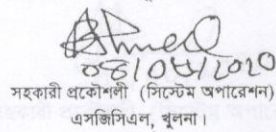 ০৪/০৮/২০২০
সহকারী প্রকৌশলী (সিস্টেম অপারেশন)
এসজিসিএল, খুলনা।